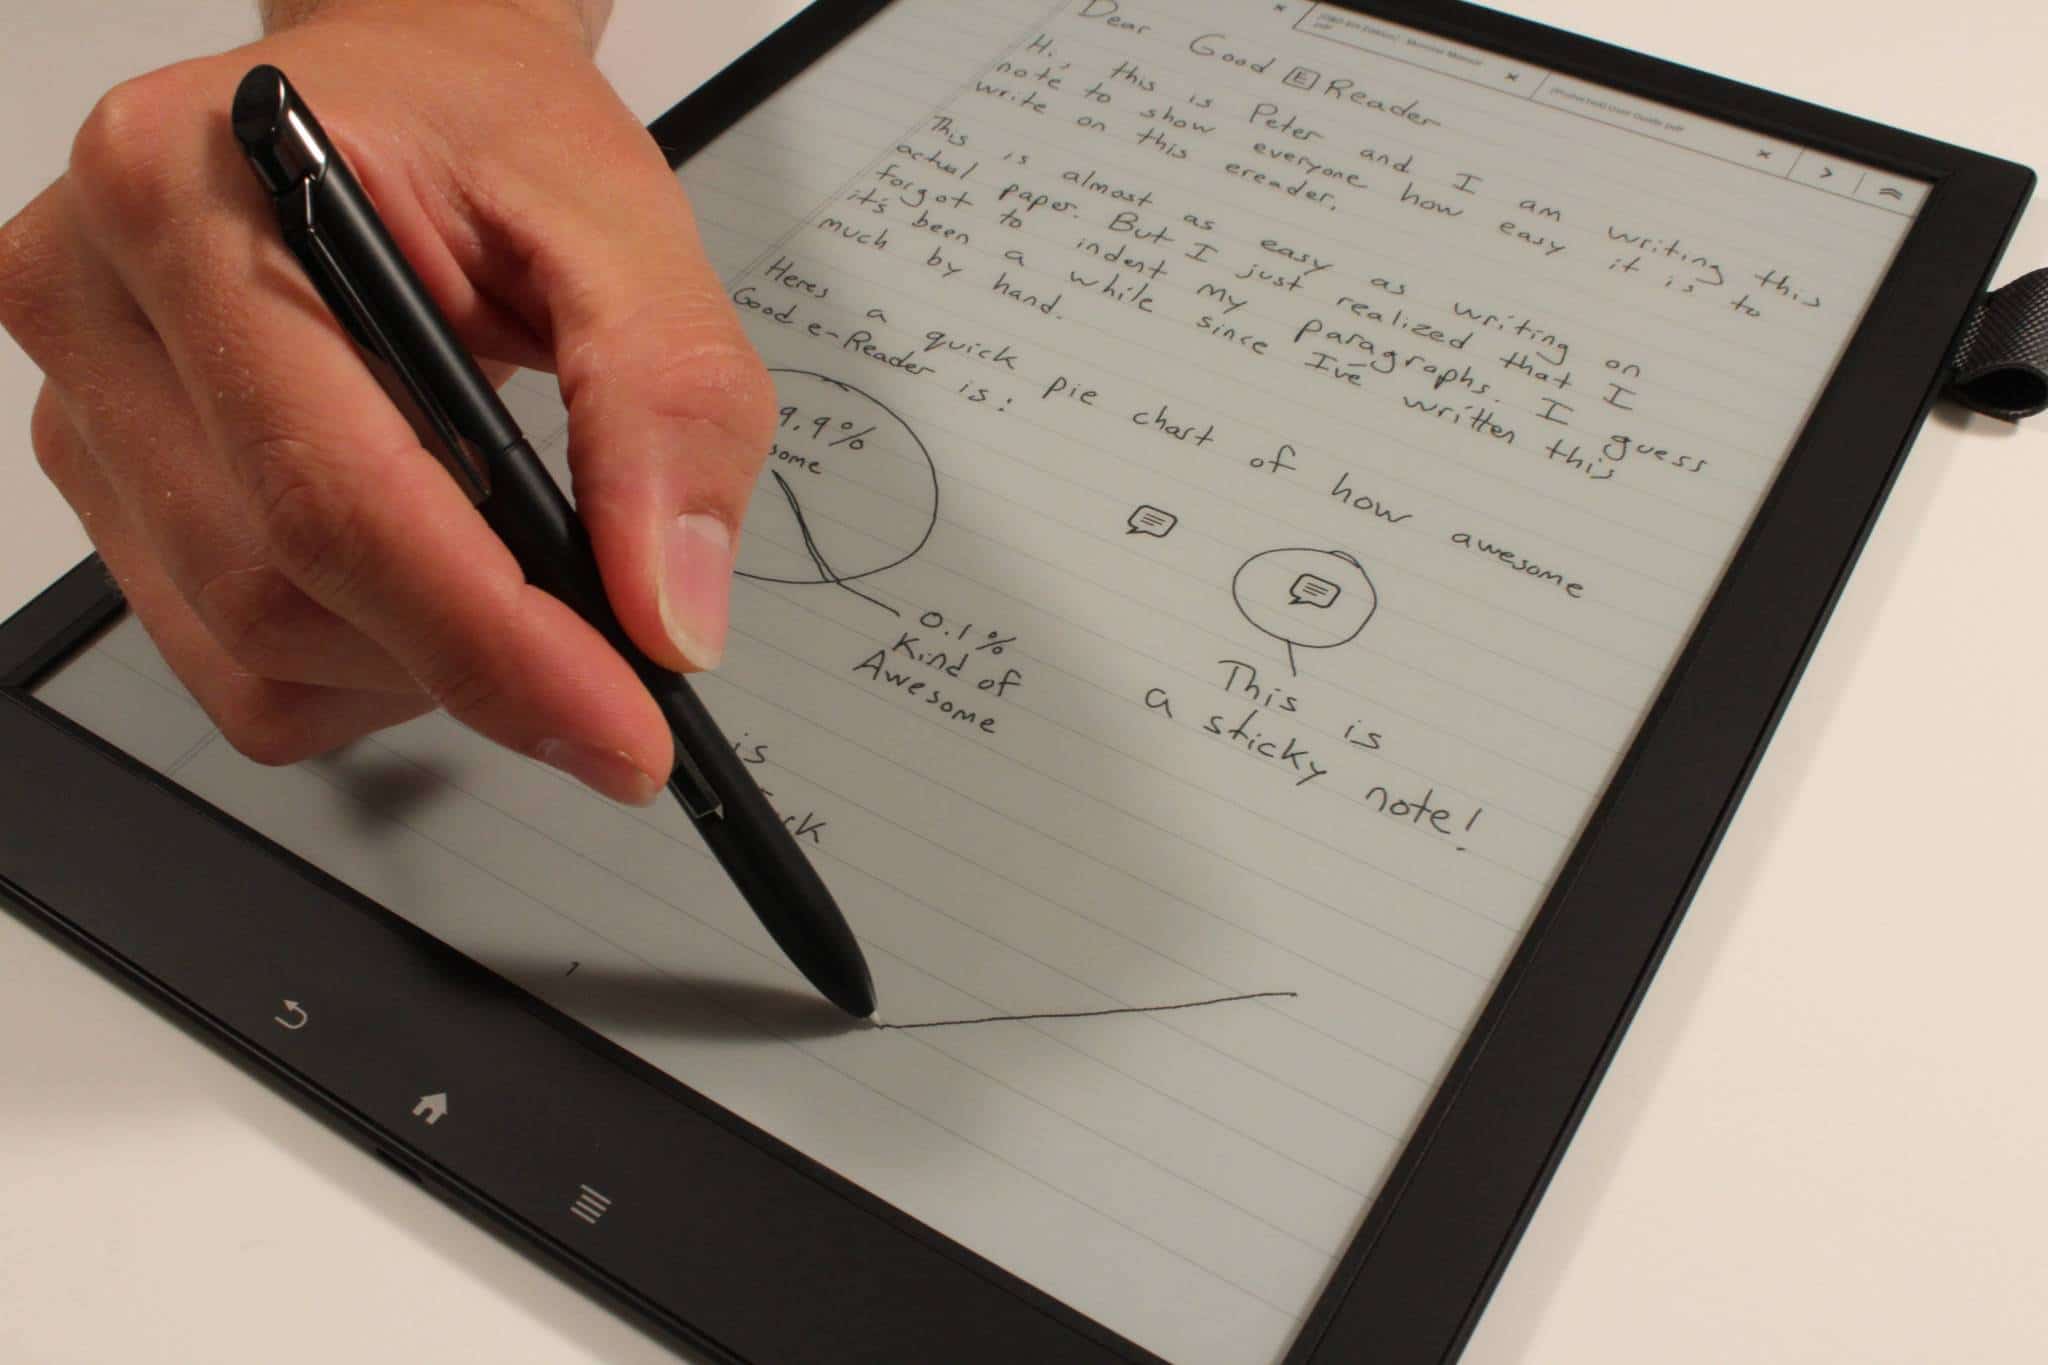 Dear Good E Reader
Hi, this is Peter and I am writing this
note to show everyone how easy it is to
write on this ereader.
This is almost as easy as writing on
actual paper. But I just realized that I
forgot to indent my paragraphs. I guess
it's been a while since I've written this
much by hand.
Heres a quick pie chart of how awesome
Good e-Reader is:
9.9%
some
0.1%
Kind of
Awesome
This is
a sticky note!
is
1
User Guide.pdf